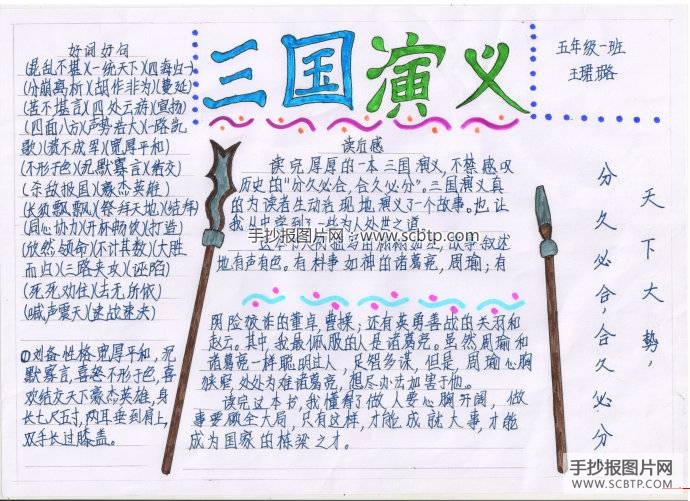 三国演义
五年级一班
王珺璐
好词好句
(混乱不堪)(一统天下)(四海归一)
(分崩离析)(胡作非为)(蔓延)
(苦不堪言)(四处云游)(宣扬)
(四面八方)(声势浩大)(一路凯
歌)(羞不成军)(宽厚平和)
(不形于色)(沉默寡言)(结交)
(杀敌报国)(豪杰英雄)
(长须飘飘)(祭拜天地)(结拜)
(同心协力)(开怀畅饮)(打造)
(欣然领命)(不计其数)(大胜
而归)(三路夹攻)(诬陷)
(死死劝住)(去无所依)
(喊声震天)(速战速决)
①刘备性格宽厚平和,沉
默寡言,喜怒不形于色,喜
欢结交天下豪杰英雄,身
长七尺五寸,两耳垂到肩上,
双手长过膝盖。
读后感
读完厚厚的一本三国演义,不禁感叹
历史的“分久必合,合久必分”。三国演义真
的为读者生动活现地演义了一个故事。也让
我从中学到了一些为人处世之道。
手抄报图片网
www.scbtp.com
栩栩如生,故事叙述
地有声有色。有料事如神的诸葛亮,周瑜;有
阴险狡诈的董卓,曹操;还有英勇善战的关羽和
赵云。其中,我最佩服的人是诸葛亮。虽然周瑜和
诸葛亮一样聪明过人,足智多谋,但是,周瑜心胸
狭窄,处处为难诸葛亮,想尽办法加害于他。
读完这本书,我懂得了做人要心胸开阔,做
事要顾全大局,只有这样,才能成就大事,才能
成为国家的栋梁之才。
天下大势,
分久必合,合久必分
手抄报图片网
WWW.SCBTP.COM